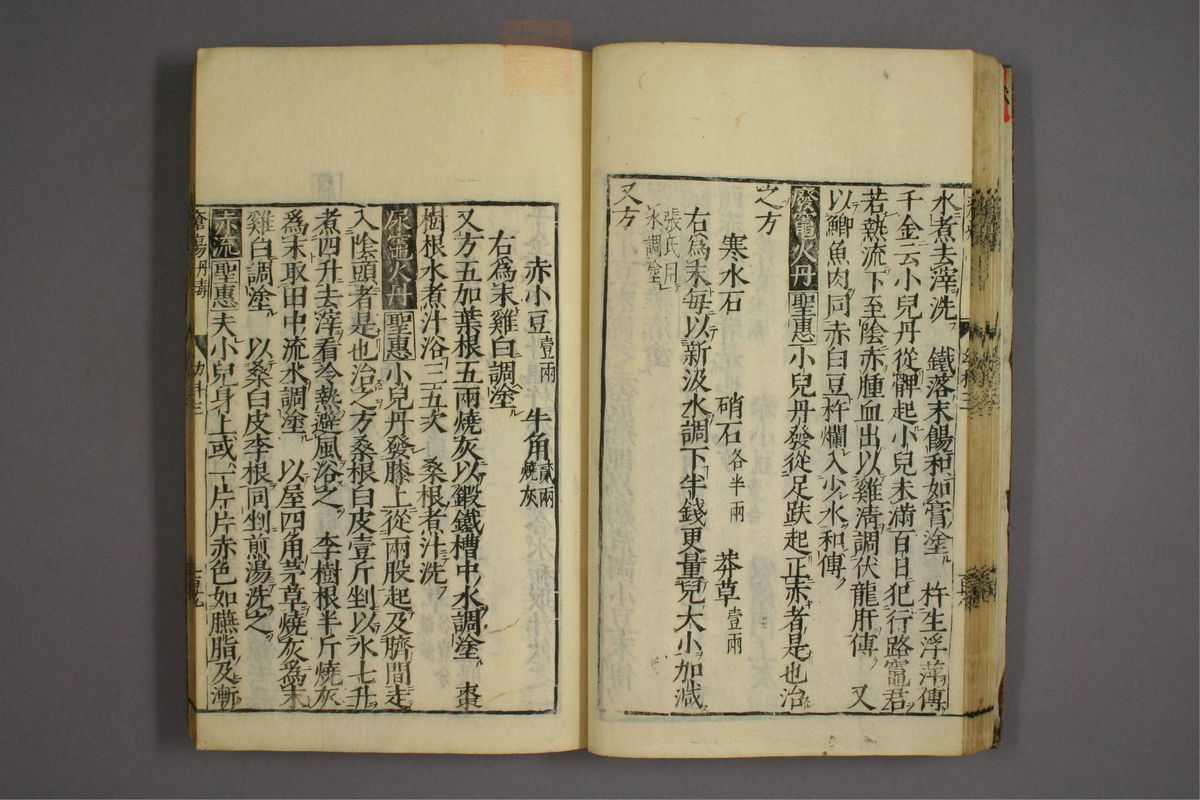 水煮去滓洗　鐵落末餳和如膏塗　杵生浮萍傳
千金云小兒丹從髀起小兒未滿百日犯行路竈君
若熱流下至陰赤腫血出以雞清調伏龍肝傳　又
以鯽魚肉同赤白豆杵爛入少水和傳
廢竈火丹聖惠小兒丹發從足趺起正赤者是也治
之方
寒水石　硝石各半兩　莽草壹兩
右爲末每以新汲水調下半錢更量兒大小加減
張氏用水調塗
又方
赤小豆壹兩　牛角貳兩燒灰
右爲末雞白調塗
又方五加葉根五兩燒灰以鍛鐵槽中水調塗　棗
樹根水煮汁浴三五次　桑根煮汁洗
尿竈火丹聖惠小兒丹發膝上從兩股起及臍間走
入陰頭者是也治之方桑根白皮壹斤剉以水七升
煮四升去滓看冷熱避風浴之　李樹根半斤燒灰
爲末取田中流水調塗　以屋四角茅草燒灰爲末
雞白調塗　以桑白皮李根同剉煎湯洗之
赤流聖惠夫小兒身上或一片片赤色如臙脂及漸